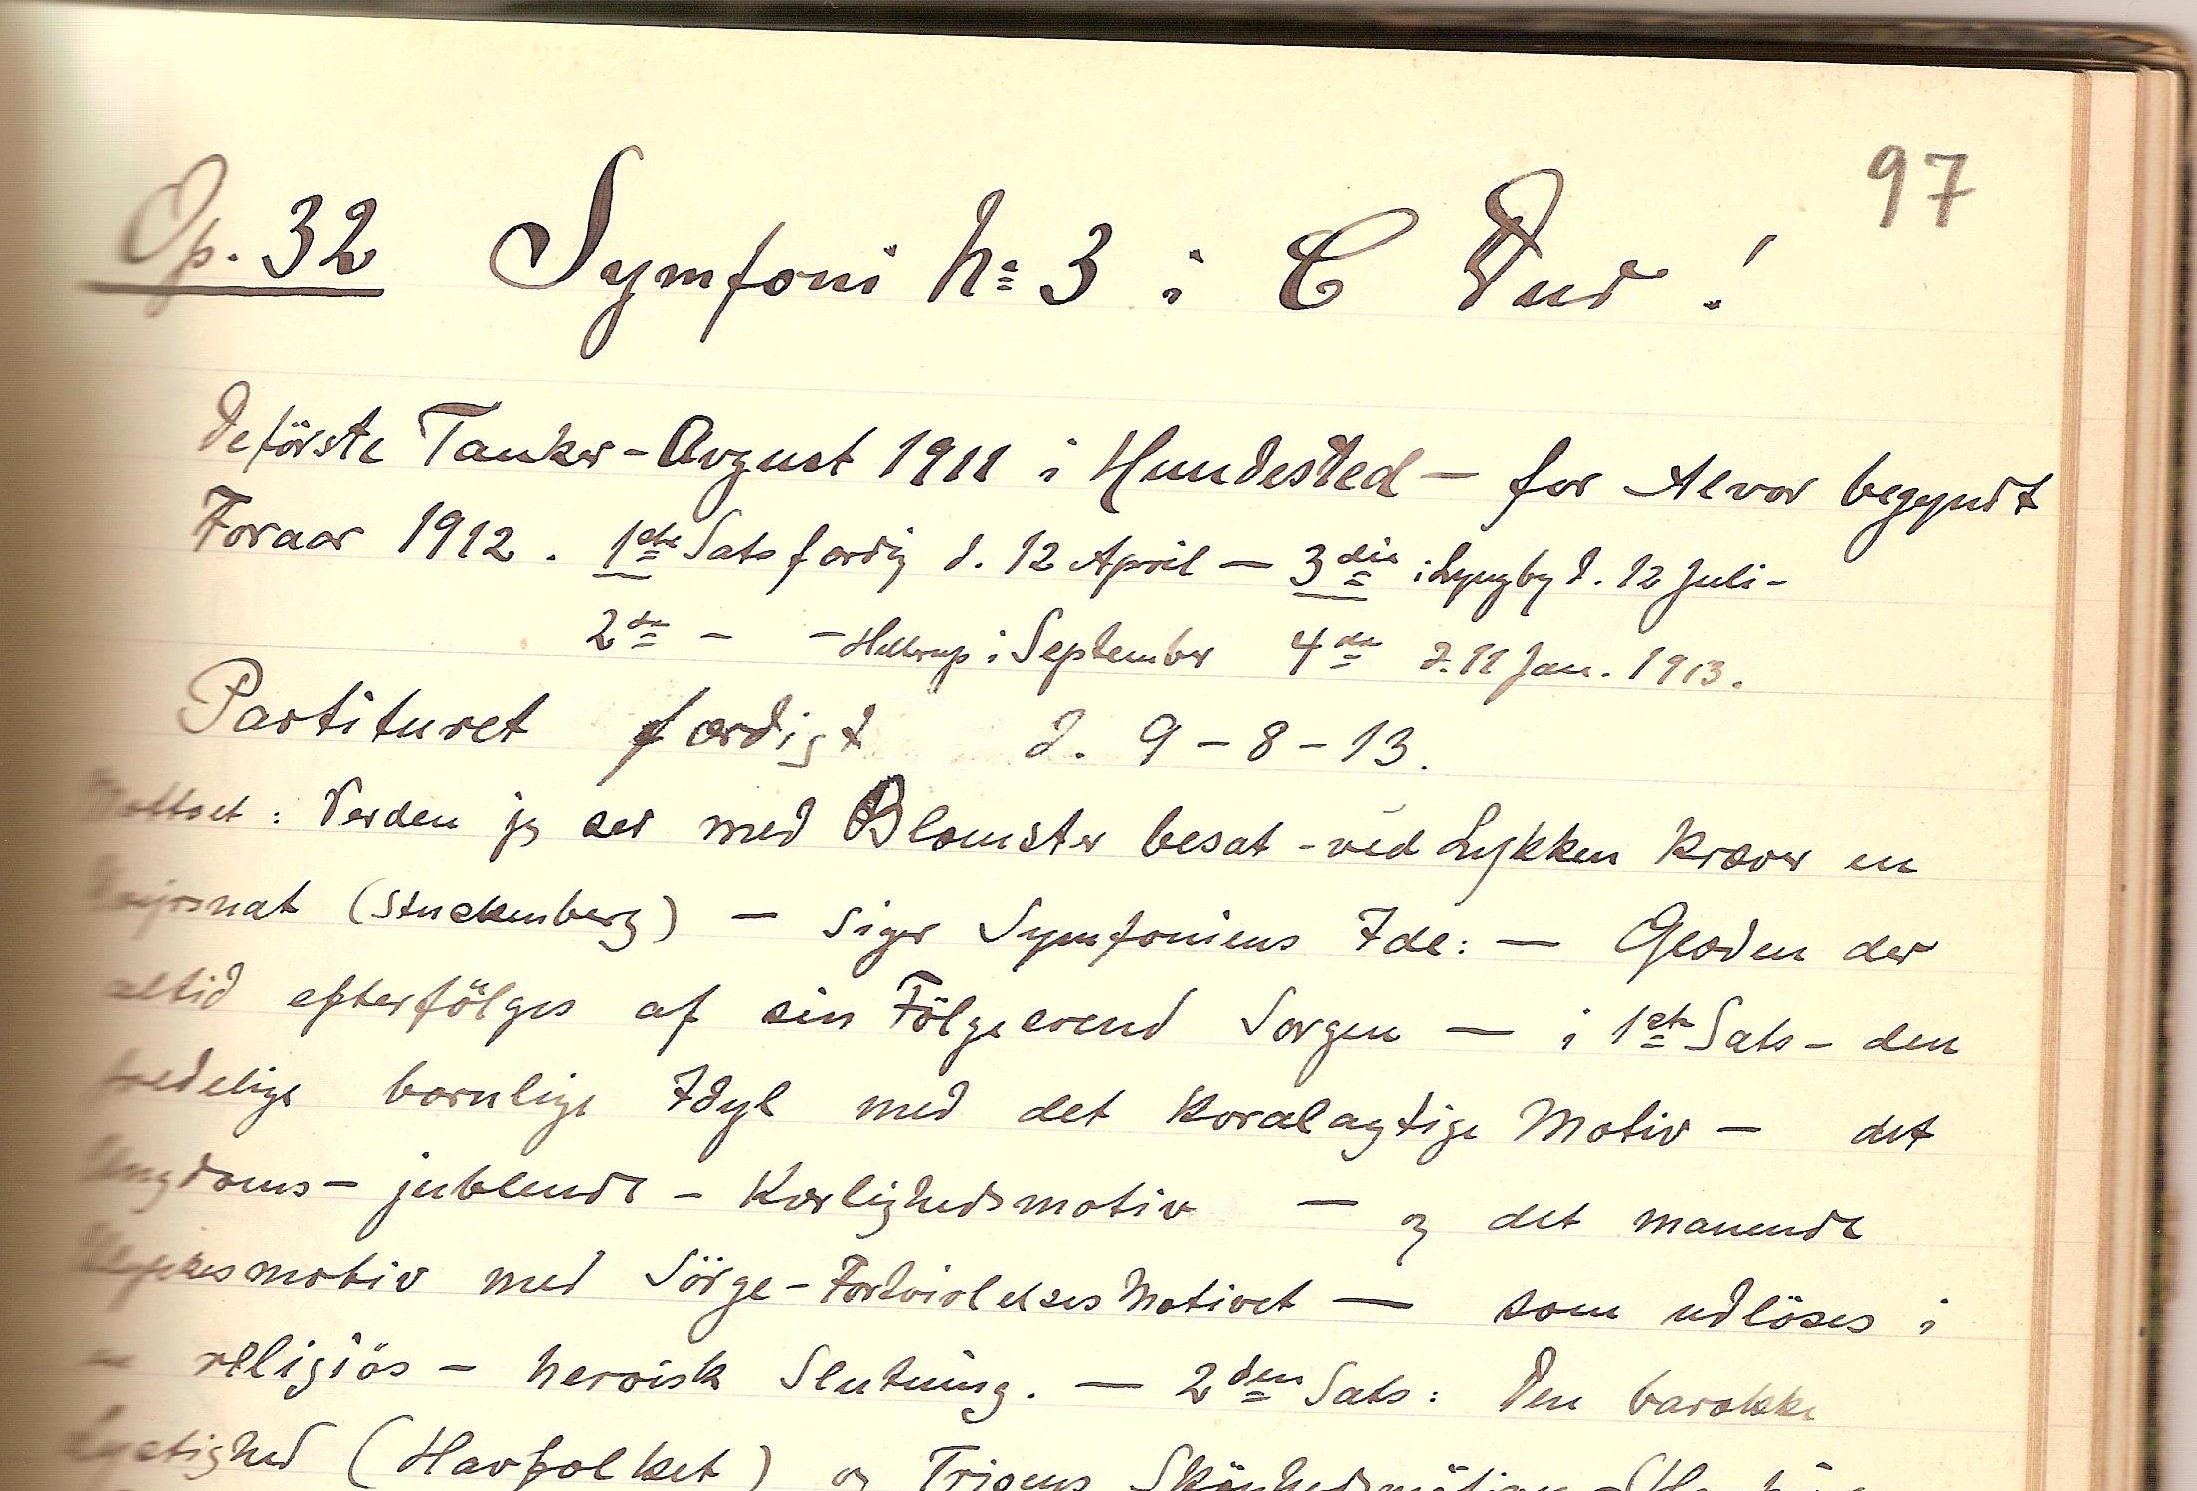 97
Op. 32 Symfoni No 3 i C Dur!
De förste Tanker - August 1911 i Hundested - for Alvor begyndt
Foraar 1912. 1ste Sats færdig d. 12 April - 3die i Lyngby d. 12 Juli -
2den - - Hellerup i September 4de d. 11 Jan. 1913.
Partituret færdigt d. 9-8-13.
Mottoet: Verden jeg ser med Blomster besat - ved Lykken kræver en
(Stuckenberg) - siger Symfoniens Ide: - Glæden der
altid efterfölges af sin Fölgesvend Sorgen - i 1ste Sats - den
fredelige barnlige Idyl med det Koralagtige Motiv - det
Ungdoms - jublende - Kærlighedsmotiv - og det manende
med Sörge - Fortvivlelses Motivet - som udlöses i
en religiös - heroisk Slutning. - 2den Sats: Den barokke
Lystighed (Havfolket) og